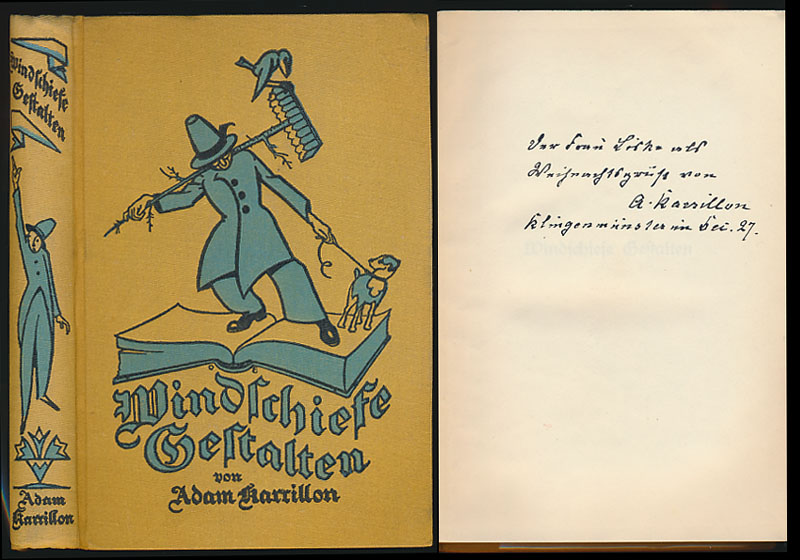 Windschiefe
Gestalten
Adam
Karrillon
Windschiefe
Gestalten
von
Adam Karrillon
Der Frau Liske als
Weihnachtsgruß von
A. Karrillon
Klingenmünster im Dec. 27.
Windschiefe Gestalten